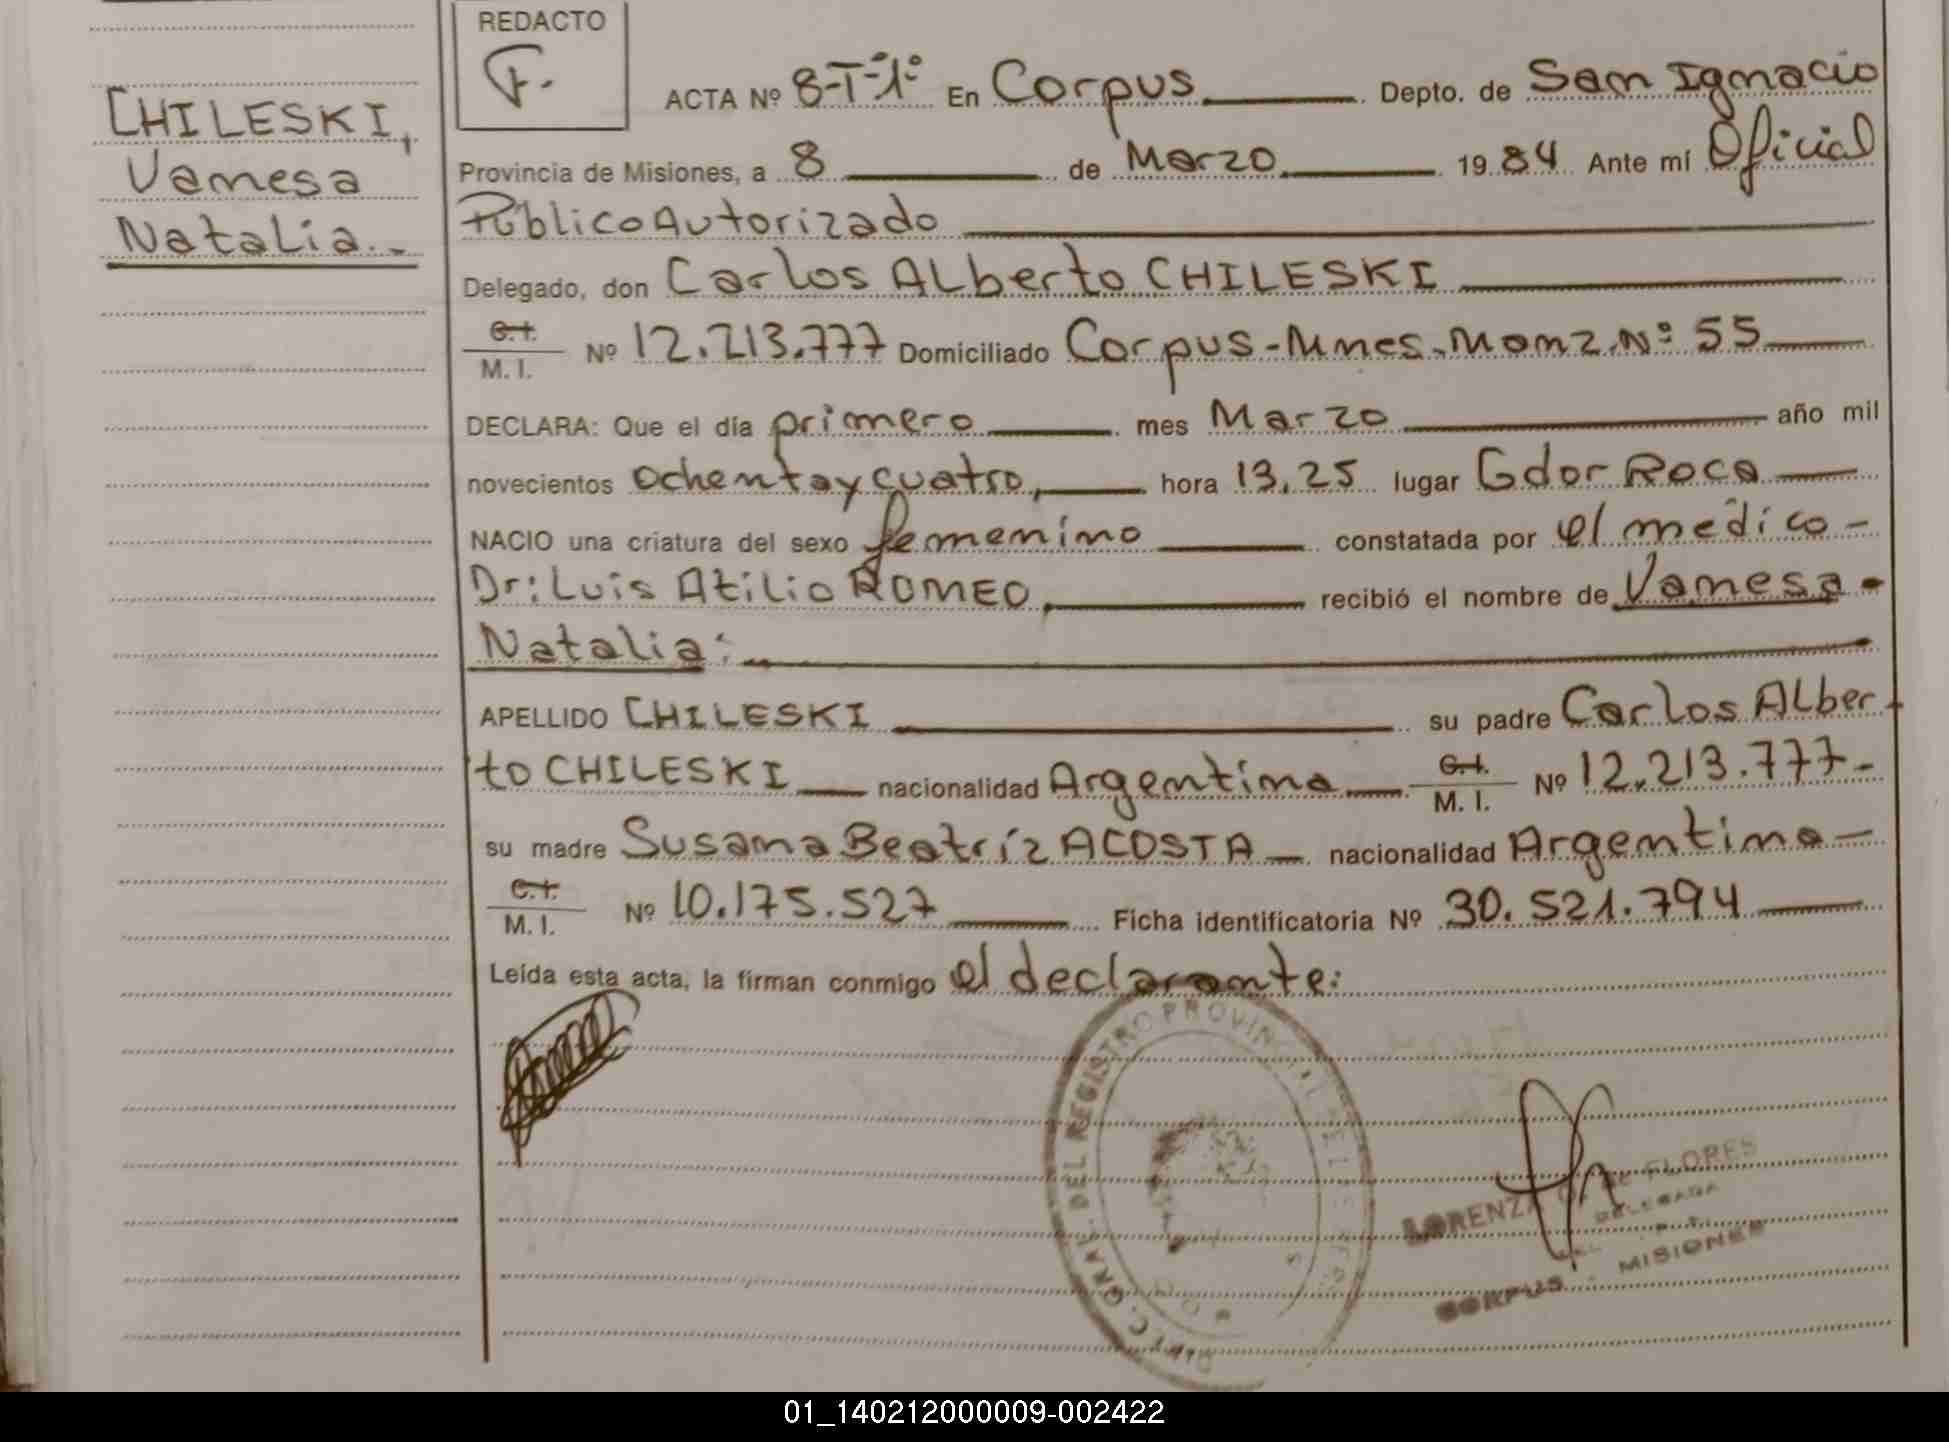 REDACTO
F.
CHILESKI,
Vanesa
Natalia.-
ACTA Nº 8-T-1º En Corpus Depto. de San Ignacio
Provincia de Misiones, a 8 de Marzo 1984 Ante mí Oficial
Público Autorizado
Delegado, don Carlos ALberto CHILESKI
C.I. / M. I. Nº 12.213.777 Domiciliado Corpus-Mnes-Manz.Nº 55
DECLARA: Que el día primero mes Marzo año mil
novecientos ochenta y cuatro, hora 13,25 lugar Gdor Roca
NACIO una criatura del sexo femenino constatada por el medico -
Dr: Luis Atilio ROMEO, recibió el nombre de Vanesa -
Natalia:
APELLIDO CHILESKI su padre Carlos ALber-
to CHILESKI nacionalidad Argentina C.I. / M. I. Nº 12.213.777-
su madre Susana Beatríz ACOSTA nacionalidad Argentina
C.I. / M. I. Nº 10.175.527 Ficha identificatoria Nº 30.521.794
Leída esta acta, la firman conmigo el declarante:
DIREC. GRAL. DEL REGISTRO PROVINCIAL DE LAS
LORENZA DE FLORES
DELEGADA
CORPUS - MISIONES
01_140212000009-002422